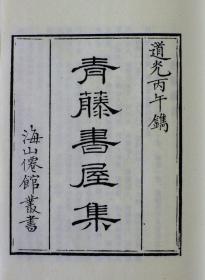 道光丙午鐫
青藤書屋集
海山僊館叢書